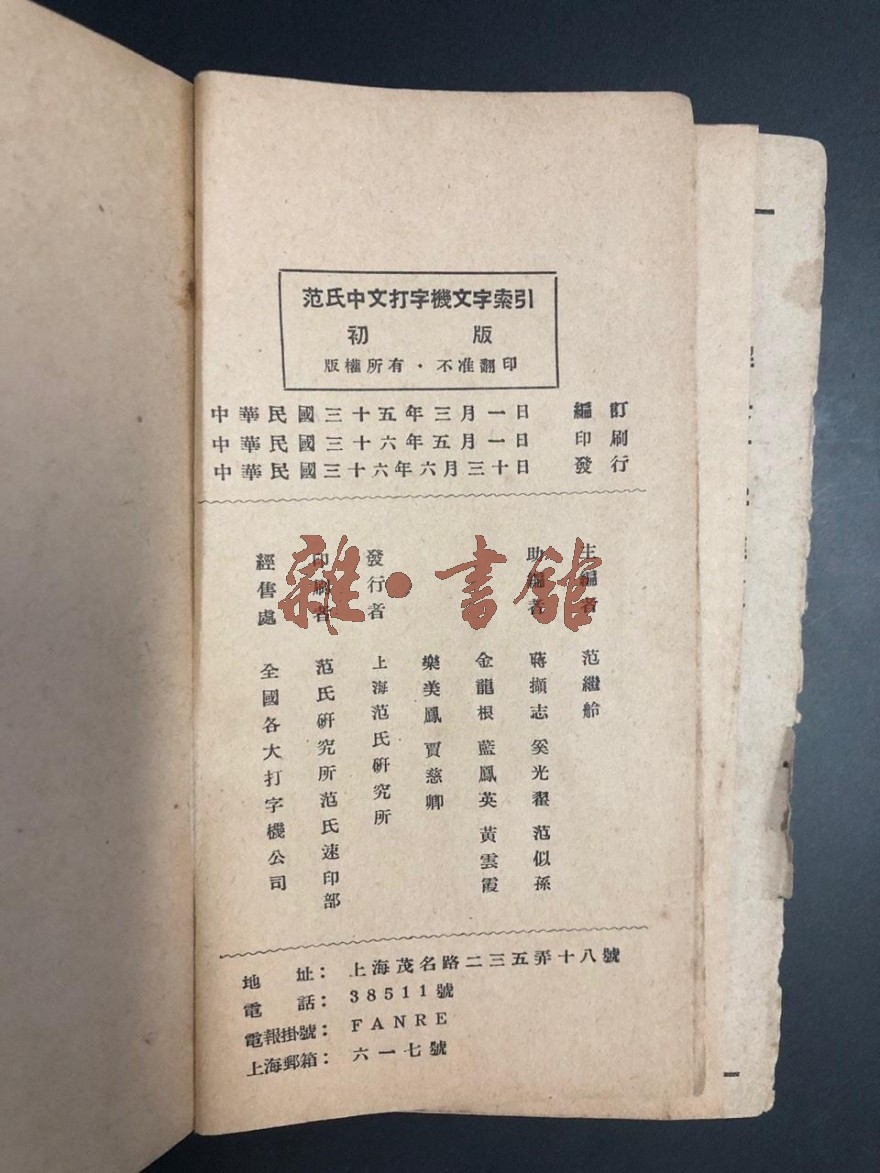 范氏中文打字機文字索引
初版
版權所有·不准翻印
中華民國三十五年三月一日 編訂
中華民國三十六年五月一日 印刷
中華民國三十六年六月三十日 發行
主編者 范繼舲
助編者 蔣擷志 奚光翟 范似孫
金龍根 藍鳳英 黃雲霞
樂美鳳 賈慈卿
發行者 上海范氏研究所
印刷者 范氏研究所范氏速印部
經售處 全國各大打字機公司
雜·書館
地址：上海茂名路二三五弄十八號
電話：38511號
電報掛號：FANRE
上海郵箱：六一七號